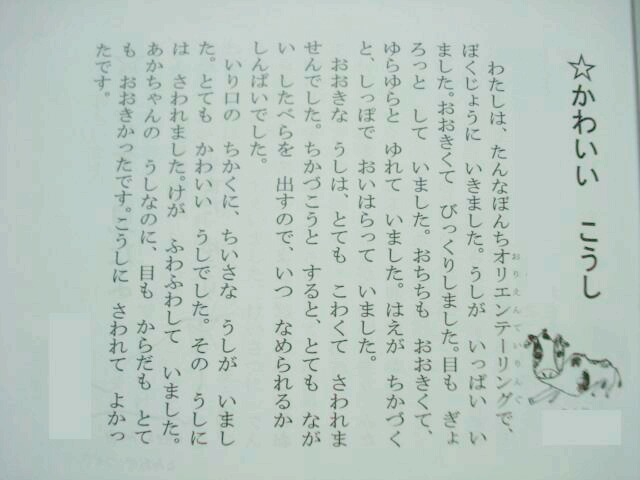 ☆かわいい　こうし
わたしは、たんなぼんちオリエンテーリングで、
おりえんていりんぐ
ぼくじょうに　いきました。うしが　いっぱい　い
ました。おおきくて　びっくりしました。目も　ぎょ
ろっと　して　いました。おちちも　おおきくて、
ゆらゆらと　ゆれて　いました。はえが　ちかづく
と、しっぽで　おいはらって　いました。
おおきな　うしは、とても　こわくて　さわれま
せんでした。ちかづこうと　すると、とても　なが
い　したべらを　出すので、いつ　なめられるか
しんぱいでした。
いり口の　ちかくに、ちいさな　うしが　いまし
た。とても　かわいい　うしでした。その　うしに
は　さわれました。けが　ふわふわして　いました。
あかちゃんの　うしなのに、目も　からだも　とて
も　おおきかったです。こうしに　さわれて　よかっ
たです。